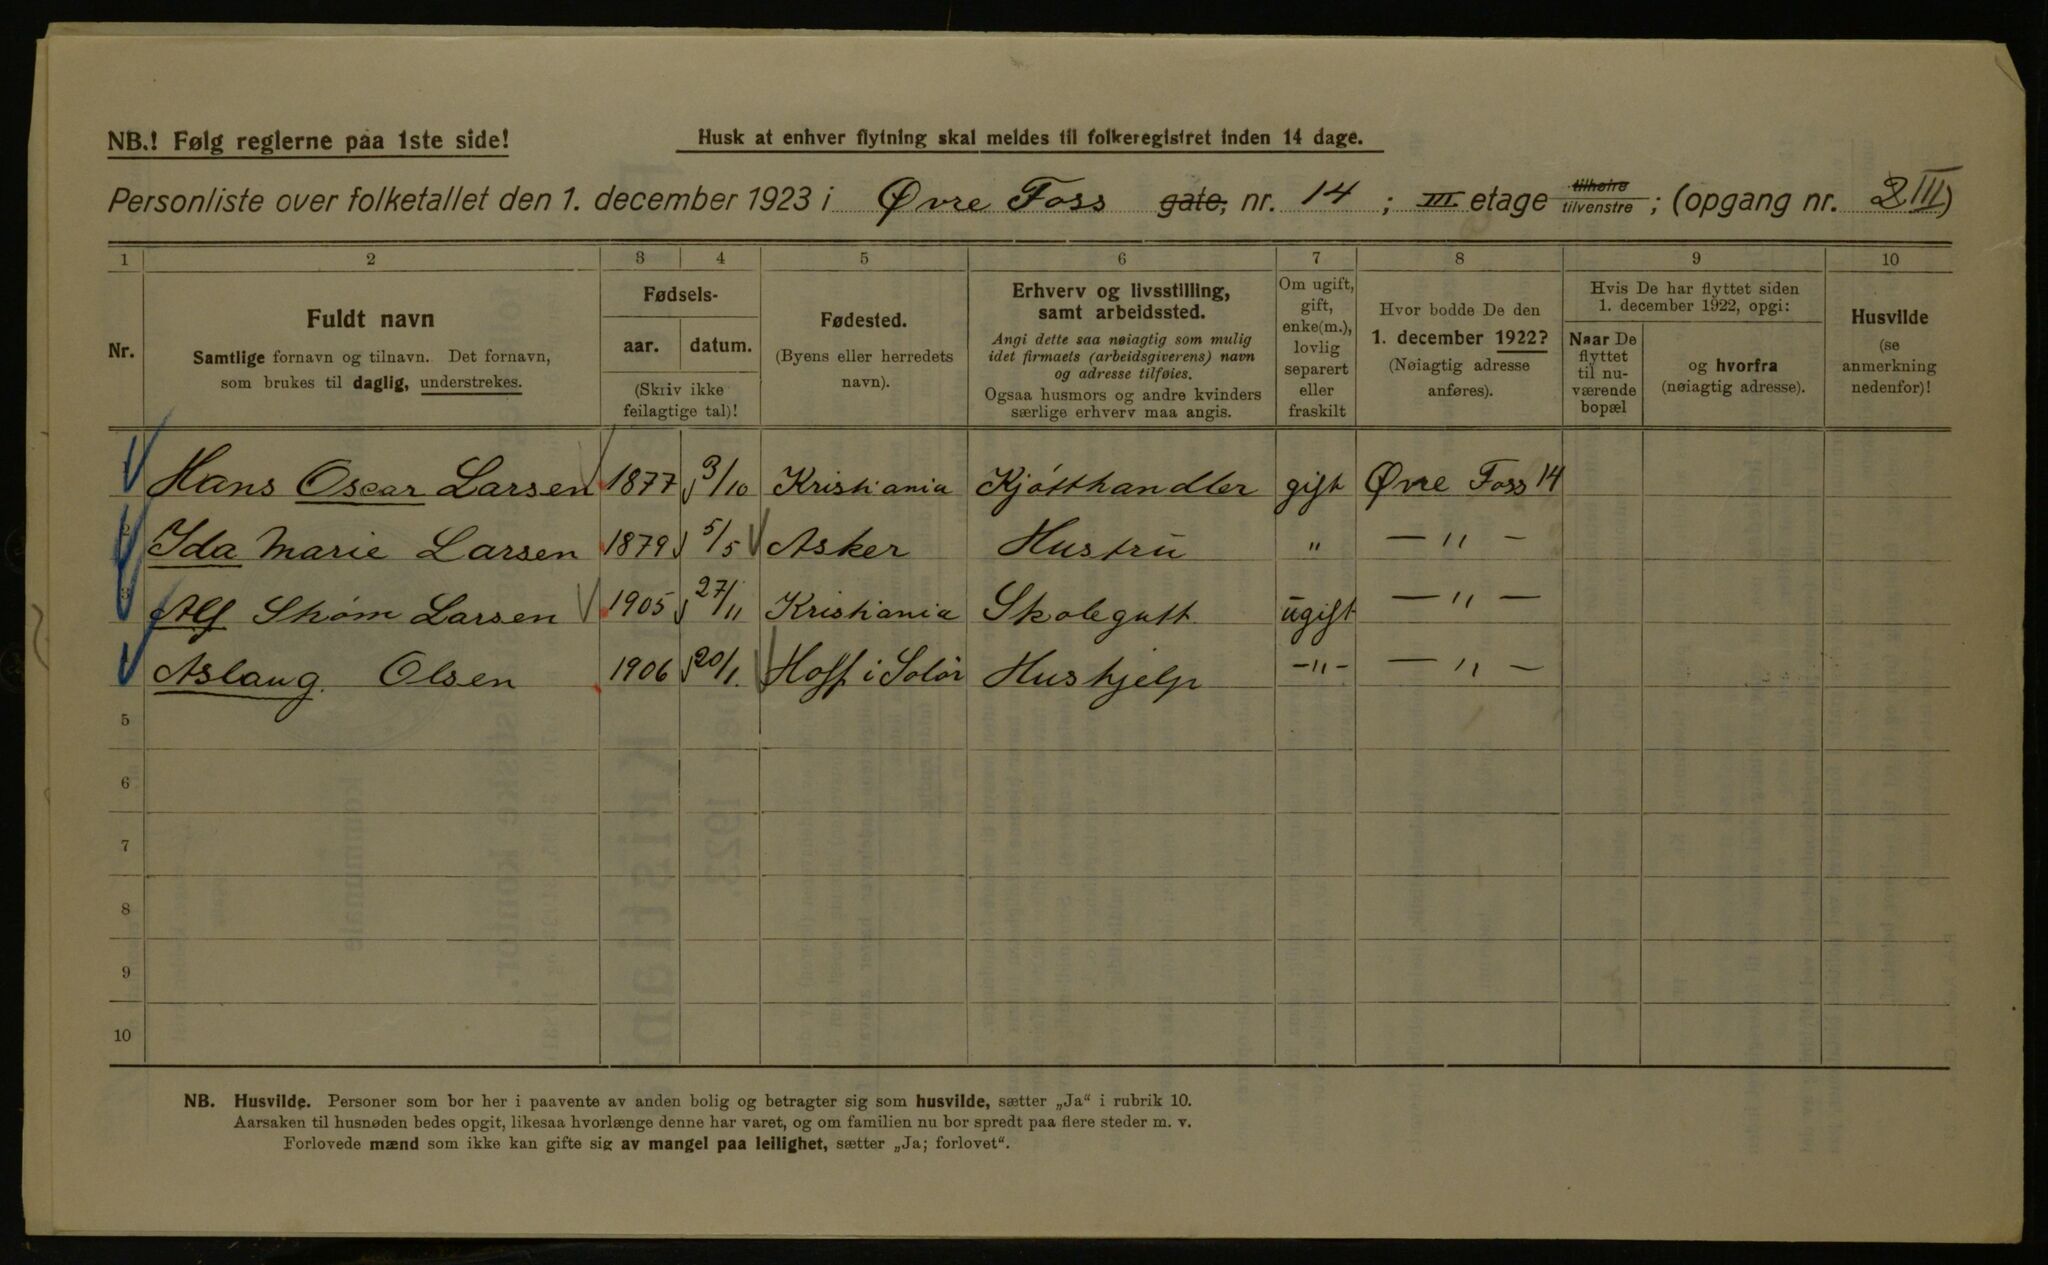 NB.! Følg reglerne paa 1ste side!
Husk at enhver flytning skal meldes til folkeregistret inden 14 dage.
Personliste over folketallet den 1. december 1923 i Øvre Foss gate, nr. 14 ; III etage tilhøire tilvenstre ; (opgang nr. 2 III)
1 2 3 4 5 6 7 8 9 10
Nr.
Fuldt navn
Samtlige fornavn og tilnavn. Det fornavn,
som brukes til daglig, understrekes.
Fødsels-
aar. datum.
(Skriv ikke
feilagtige tal)!
Fødested.
(Byens eller herredets
navn).
Erhverv og livsstilling,
samt arbeidssted.
Angi dette saa nøiagtig som mulig
idet firmaets (arbeidsgiverens) navn
og adresse tilføies.
Ogsaa husmors og andre kvinders
særlige erhverv maa angis.
Om ugift,
gift,
enke(m.),
lovlig
separert
eller
fraskilt
Hvor bodde De den
1. december 1922?
(Nøiagtig adresse
anføres).
Hvis De har flyttet siden
1. december 1922, opgi:
Naar De
flyttet
til nu-
værende
bopæl
og hvorfra
(nøiagtig adresse).
Husvilde
(se
anmerkning
nedenfor)!
Hans Oscar Larsen 1877 3/10 Kristiania Kjøtthandler gift Øvre Foss 14
2 Ida Marie Larsen 1879 5/5 Asker Hustru " — " —
3 Alf Strøm Larsen 1905 27/11 Kristiania Skolegutt ugift — " —
Aslaug Olsen 1906 20/1. Hoff i Solør Hushjelp — " — — " —
5
6
7
8
9
10
NB. Husvilde. Personer som bor her i paavente av anden bolig og betragter sig som husvilde, sætter „Ja“ i rubrik 10.
Aarsaken til husnøden bedes opgit, likesaa hvorlænge denne har varet, og om familien nu bor spredt paa flere steder m. v.
Forlovede mænd som ikke kan gifte sig av mangel paa leilighet, sætter „Ja; forlovet“.